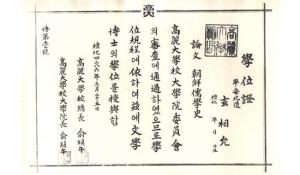 學位證
平安北道
玄相允
檀紀 年 月 日生
論文 朝鮮儒學史
高麗大學校大學院委員會
의審査에通過하였으므로學
位規程에依하여玆에文學
博士의學位를授與함
檀紀四二八六年三月二十五日
高麗大學校總長 俞鎭午
高麗大學校大學院長 俞鎭午
博第壹號